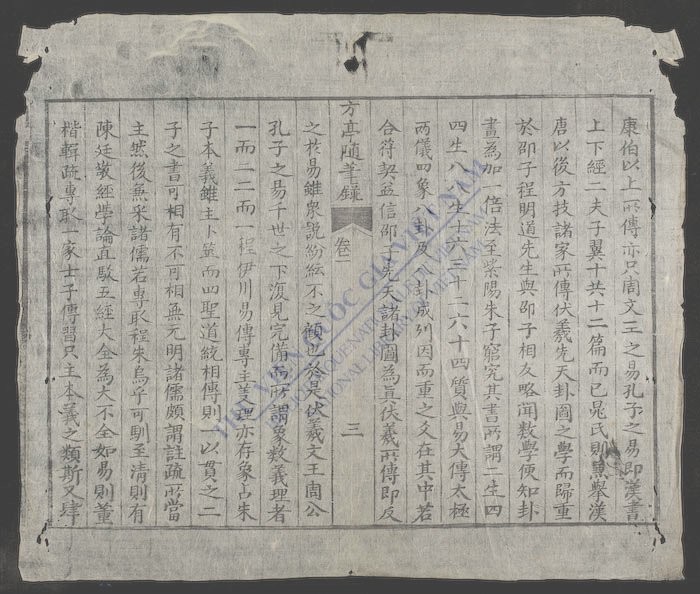 康伯以上所傳亦只周文王之易孔子之易即漢書
上下經二夫子翼十共十二篇而已晁氏則兼舉漢
唐以後方技諸家所傳伏羲先天卦圖之學而歸重
於邵子程明道先生與邵子相友略聞數學便知卦
畫為加一倍法至紫陽朱子窮究其書所謂二生四
四生八八生十六三十二六十四質與易大傳太極
兩儀四象八卦及八卦成列因而重之爻在其中若
合符契益信邵子先天諸卦圖為真伏羲所傳即反
方亭隨筆錄 卷一 三
之於易雖衆說紛紜不之顧也於是伏羲文王周公
孔子之易千世之下復見完備而所謂象數義理者
一而二二而一程伊川易傳專主義理亦存象占朱
子本義雖主卜筮而四聖道統相傳則一以貫之二
子之書可相有不可相無元明諸儒頗謂註疏所當
主然後兼采諸儒若專取程朱烏乎可馴至清則有
陳廷敬經學論直駁五經大全為大不全如易則董
楷輯疏專取一家士子傳習只主本義之類斯又肆
THƯ VIỆN QUỐC GIA VIỆT NAM
BIBLIOTHEQUE NATIONALE DU VIETNAM
NATIONAL LIBRARY OF VIETNAM